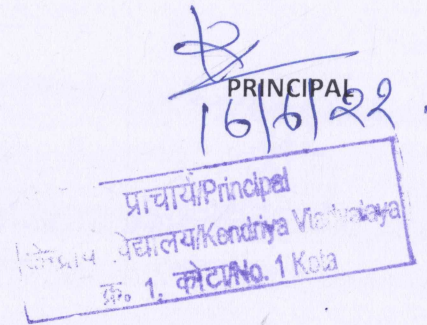 PRINCIPAL
16/6/22
प्राचार्य/Principal
विद्यालय/Kendriya Vidyalaya
क्र. 1, कोटा/No. 1 Kota